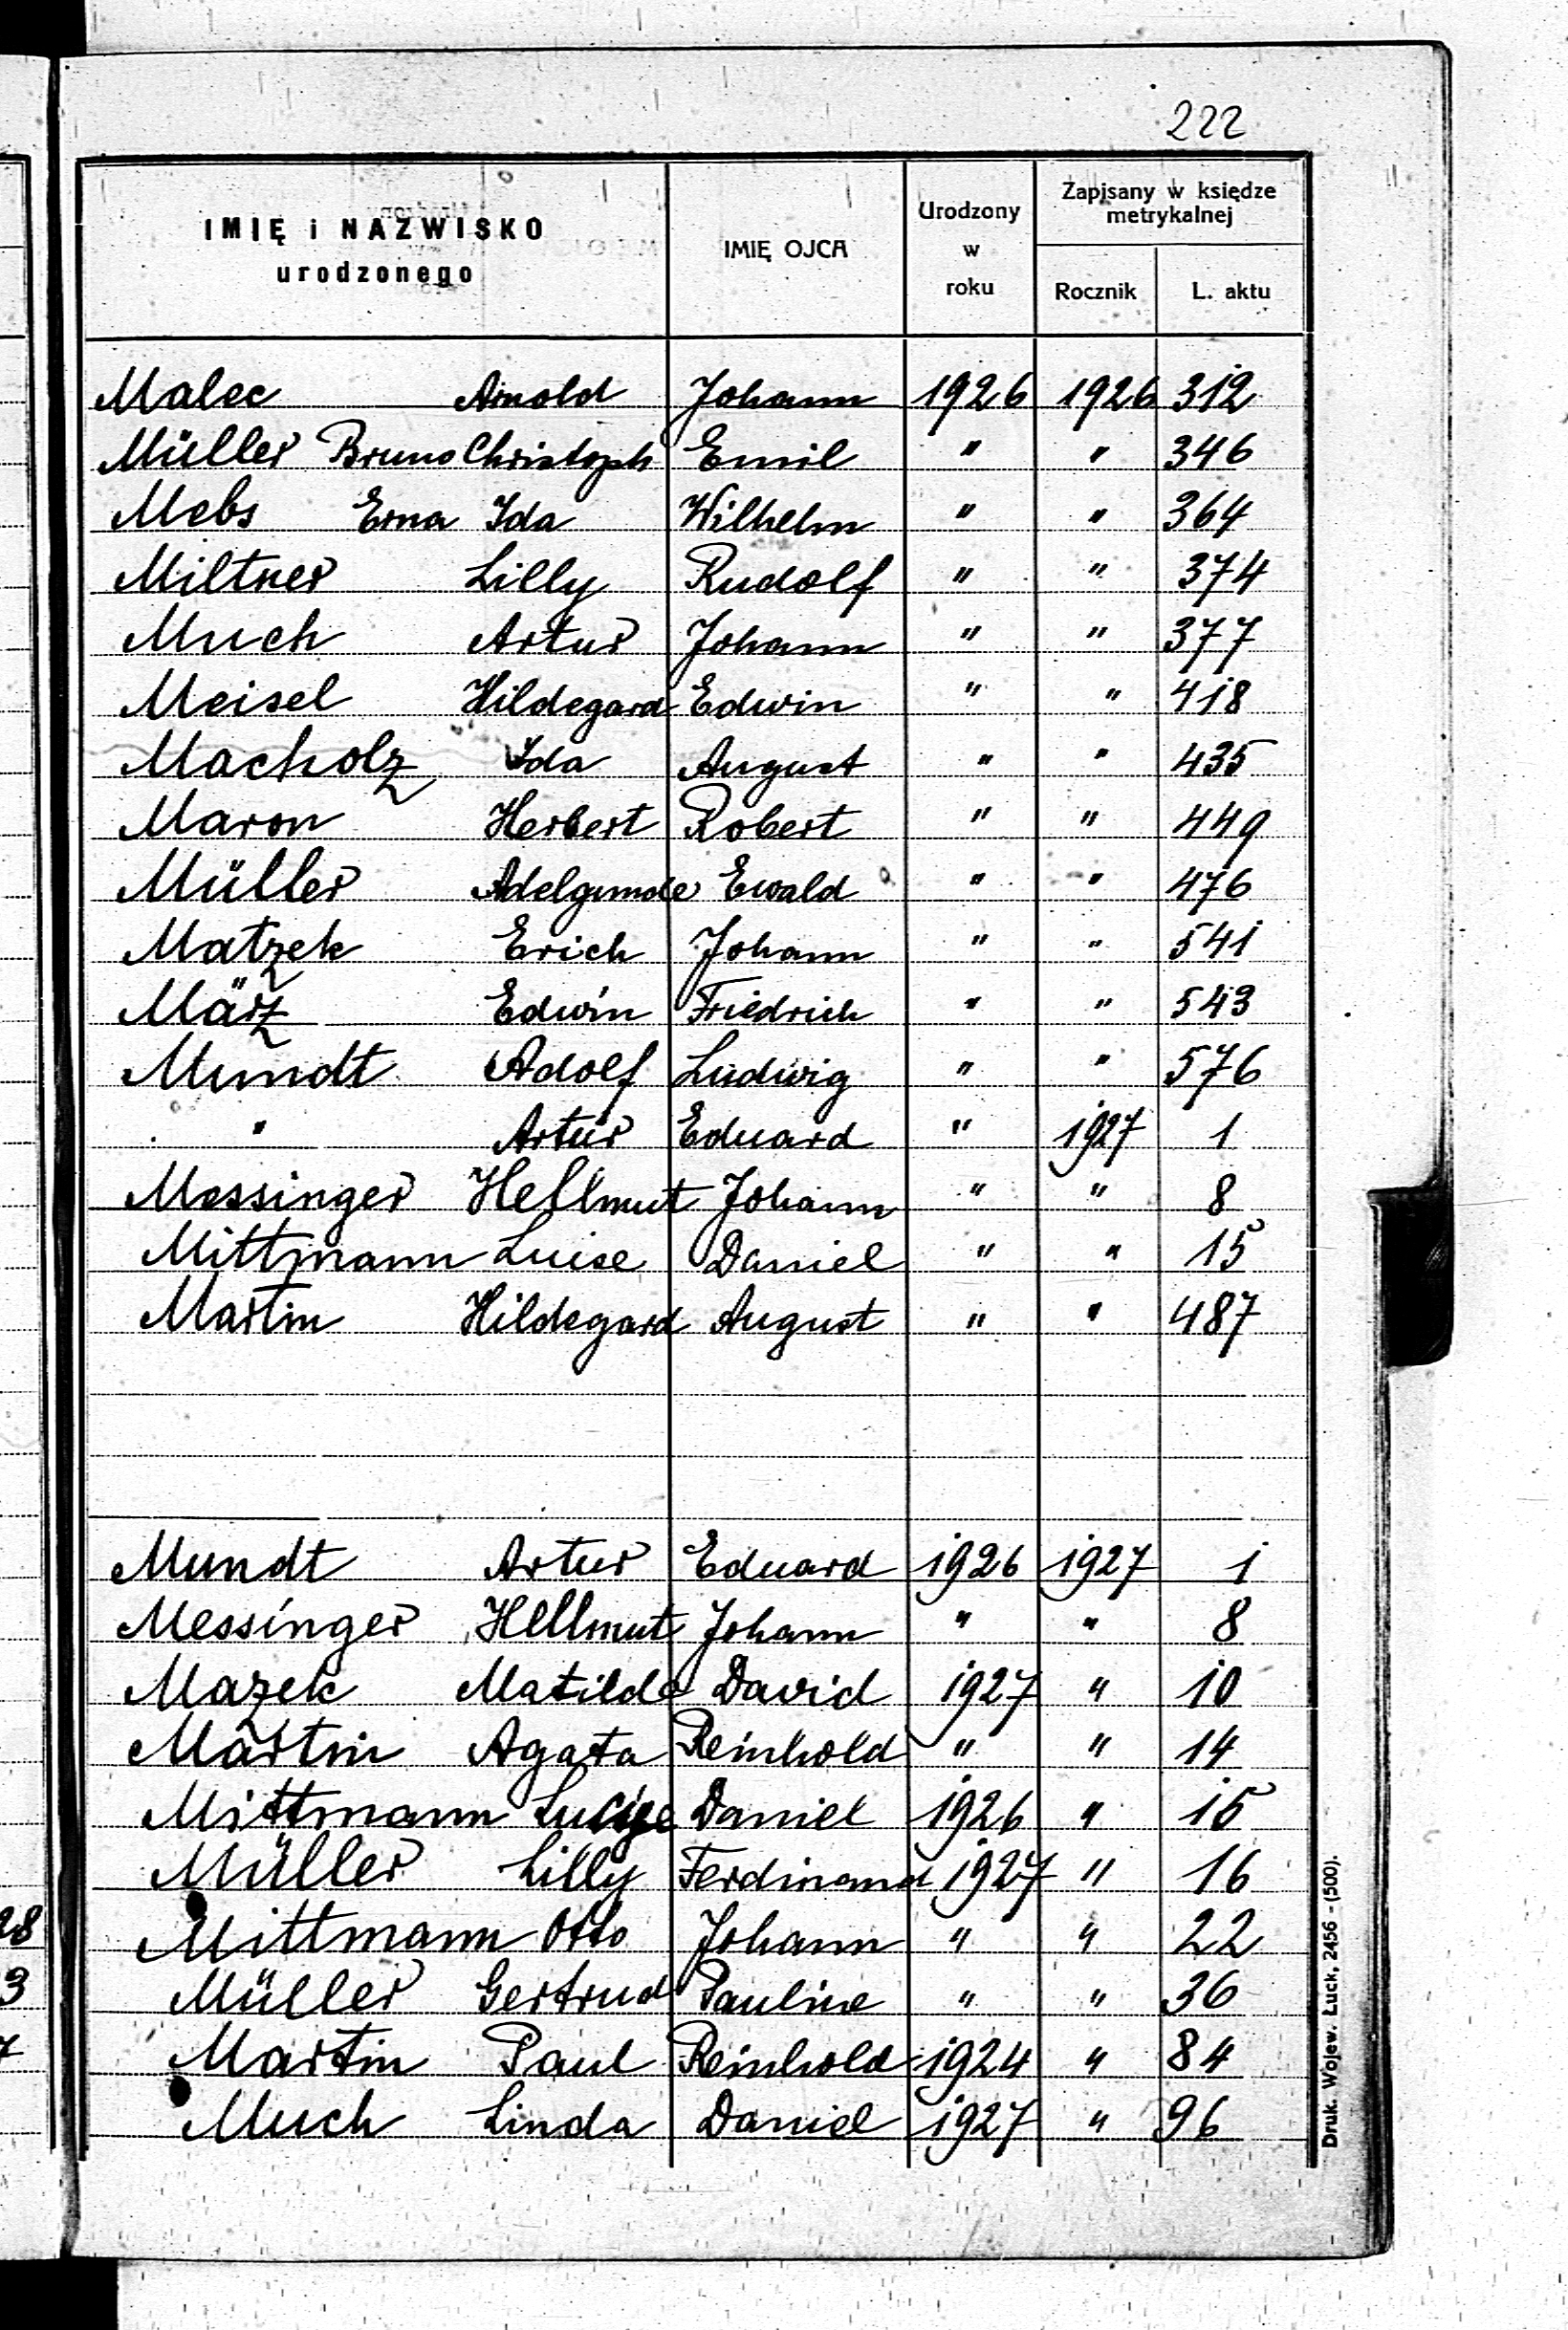 222
IMIĘ i NAZWISKO urodzonego IMIĘ OJCA Urodzony w roku Zapisany w księdze metrykalnej Rocznik L. aktu
Malec Arnold Johann 1926 1926 312
Müller Bruno Christoph Emil " " 346
Mebs Erna Ida Wilhelm " " 364
Miltner Lilly Rudolf " " 374
Much Artur Johann " " 377
Meisel Hildegard Edwin " " 418
Macholz Ida August " " 435
Maron Herbert Robert " " 449
Müller Adelgunde Ewald " " 476
Matzek Erich Johann " " 541
März Edwin Friedrich " " 543
Mundt Adolf Ludwig " " 576
" Artur Eduard " 1927 1
Messinger Hellmut Johann " " 8
Mittmann Luise Daniel " " 15
Martin Hildegard August " " 487
Mundt Artur Eduard 1926 1927 1
Messinger Hellmut Johann " " 8
Mazek Matilde David 1927 " 10
Martin Agata Reinhold " " 14
Mittmann Daniel 1926 " 15
Müller Lilly Ferdinand 1927 " 16
Mittmann Otto Johann " " 22
Müller Gertrud Pauline " " 36
Martin Paul Reinhold 1924 " 84
Much Linda Daniel 1927 " 96
28
3
7
Druk. Wojew. Łuck, 2456 - (500).